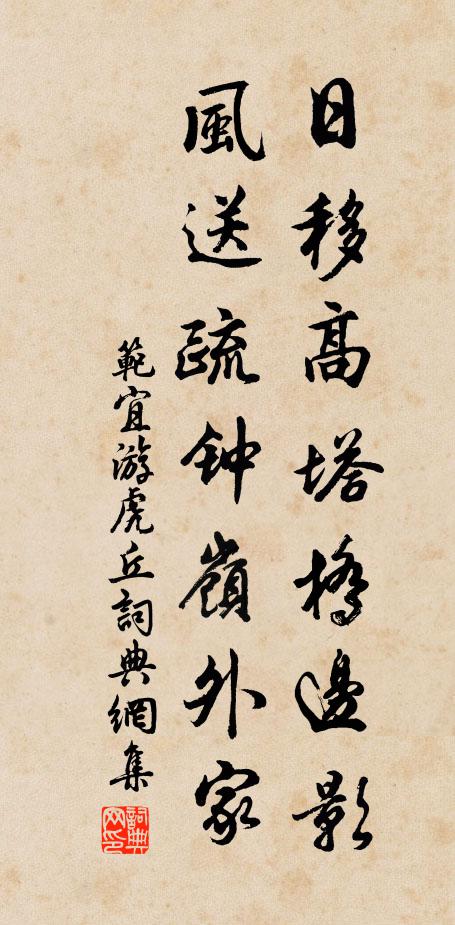 日移高塔橋邊影
風送疏钟嶺外家
範宜游虎丘詞典網集
詞典网印